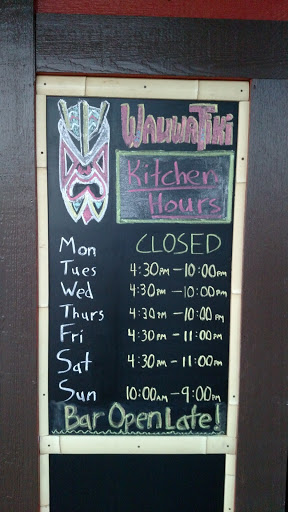 WauwaTiki
Kitchen
Hours
Mon CLOSED
Tues 4:30PM - 10:00PM
Wed 4:30PM - 10:00PM
Thurs 4:30PM - 10:00PM
Fri 4:30PM - 11:00PM
Sat 4:30PM - 11:00PM
Sun 10:00AM - 9:00PM
Bar Open Late!